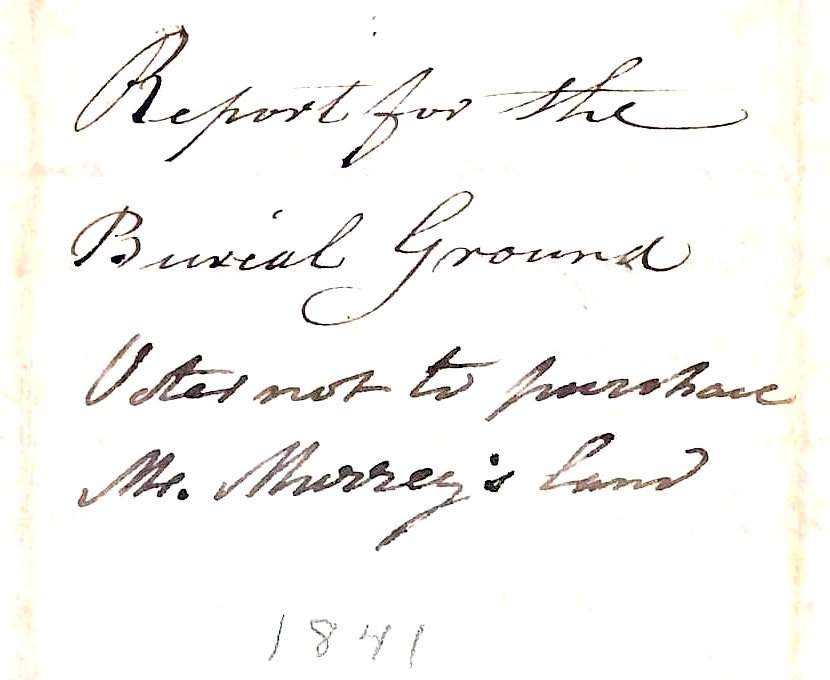 Report for the
Burial Ground
Voted not to purchase
Mr. Murrey's land
1841